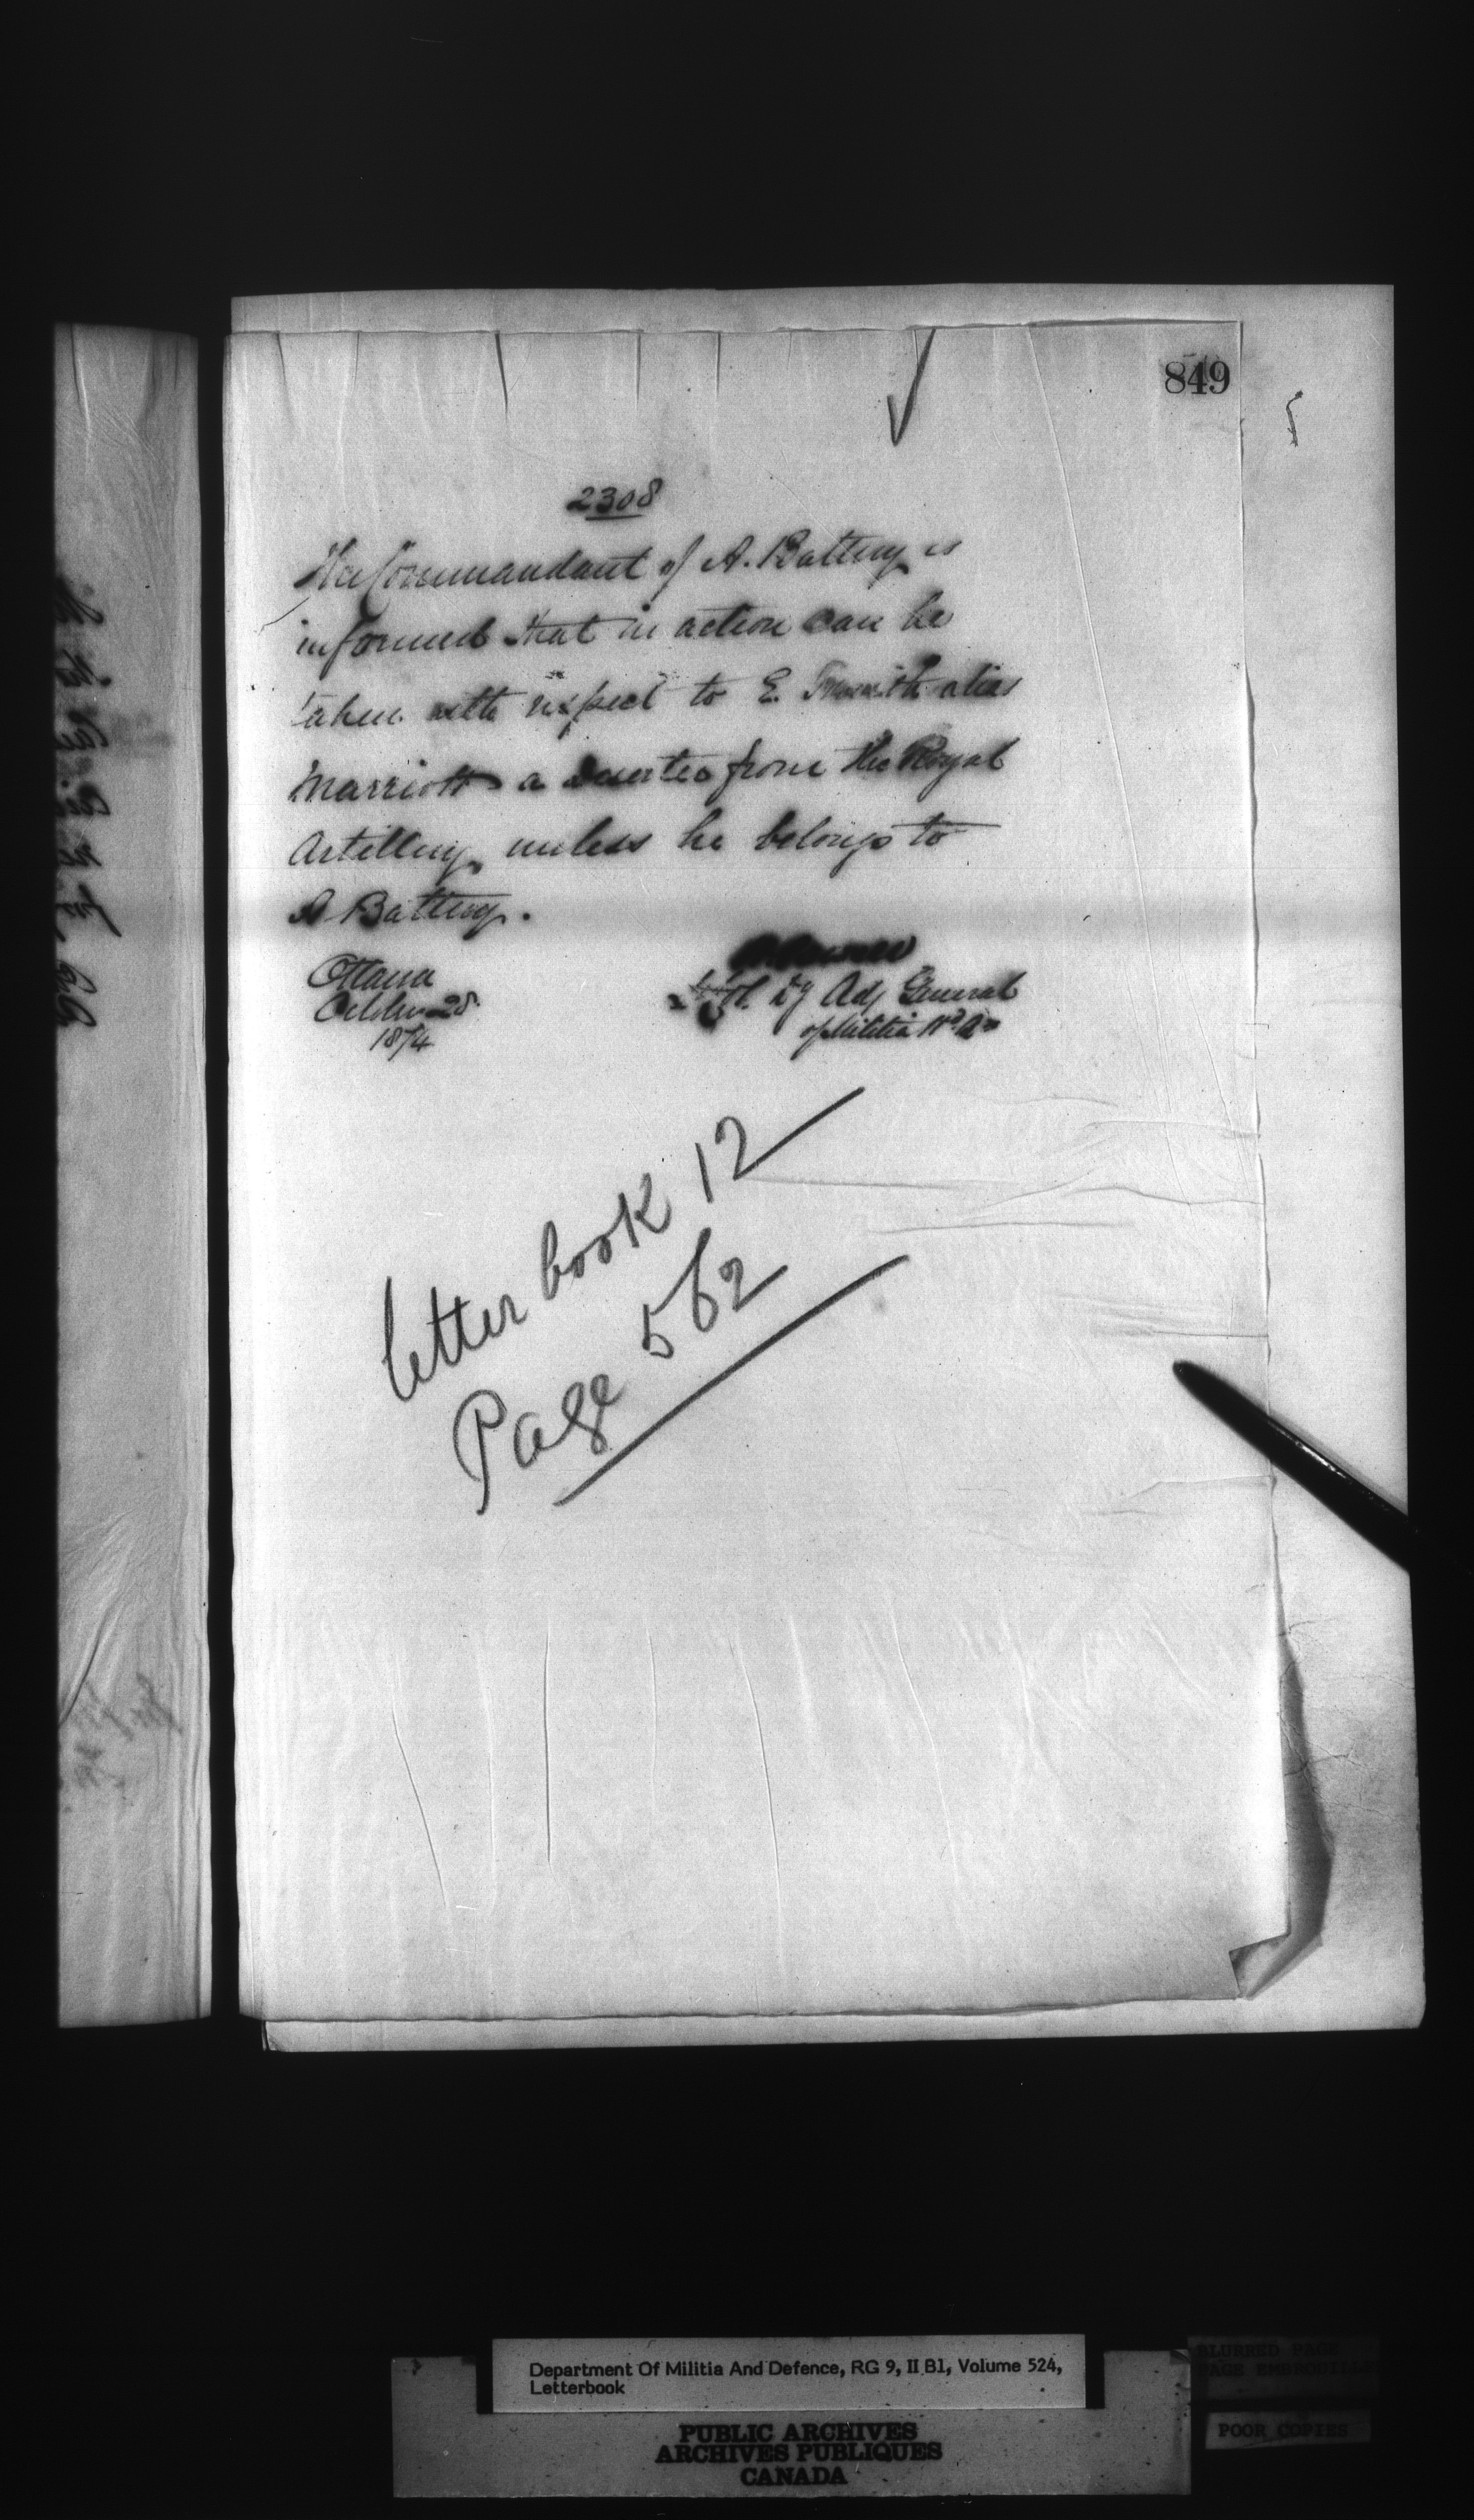 849
2308
The Commandant of A. Battery is
informed that no action can be
taken with respect to E. Smith alias
Marriott a deserter from the Royal
Artillery, unless he belongs to
A Battery.
Ottawa
October 28
1874
Powell
Lt Col. Dy Adj General
of Militia
letter book 12
Page 562
Department Of Militia And Defence, RG 9, II B1, Volume 524,
Letterbook
BLURRED PAGE
POOR COPIES
PUBLIC ARCHIVES
ARCHIVES PUBLIQUES
CANADA